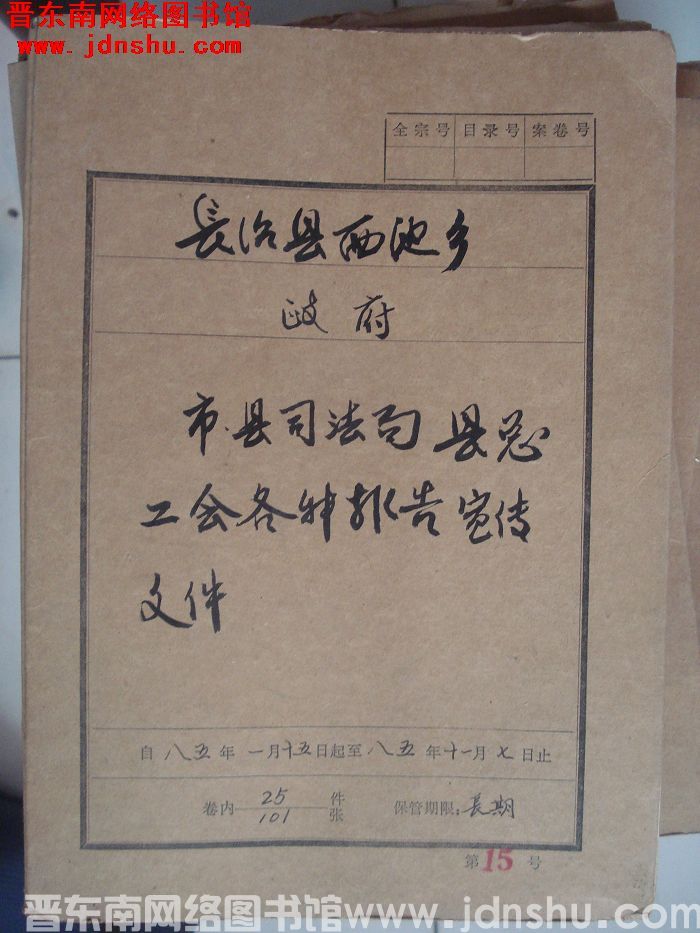 晋东南网络图书馆
www.jdnshu.com
全宗号 目录号 案卷号
長治县西池乡
政府
市.县司法局县总
工会各种报告宣传
文件
自八五年一月十五日起至八五年十一月七日止
卷内 25 件 101 张 保管期限:長期
第15号
晋东南网络图书馆www.jdnshu.com